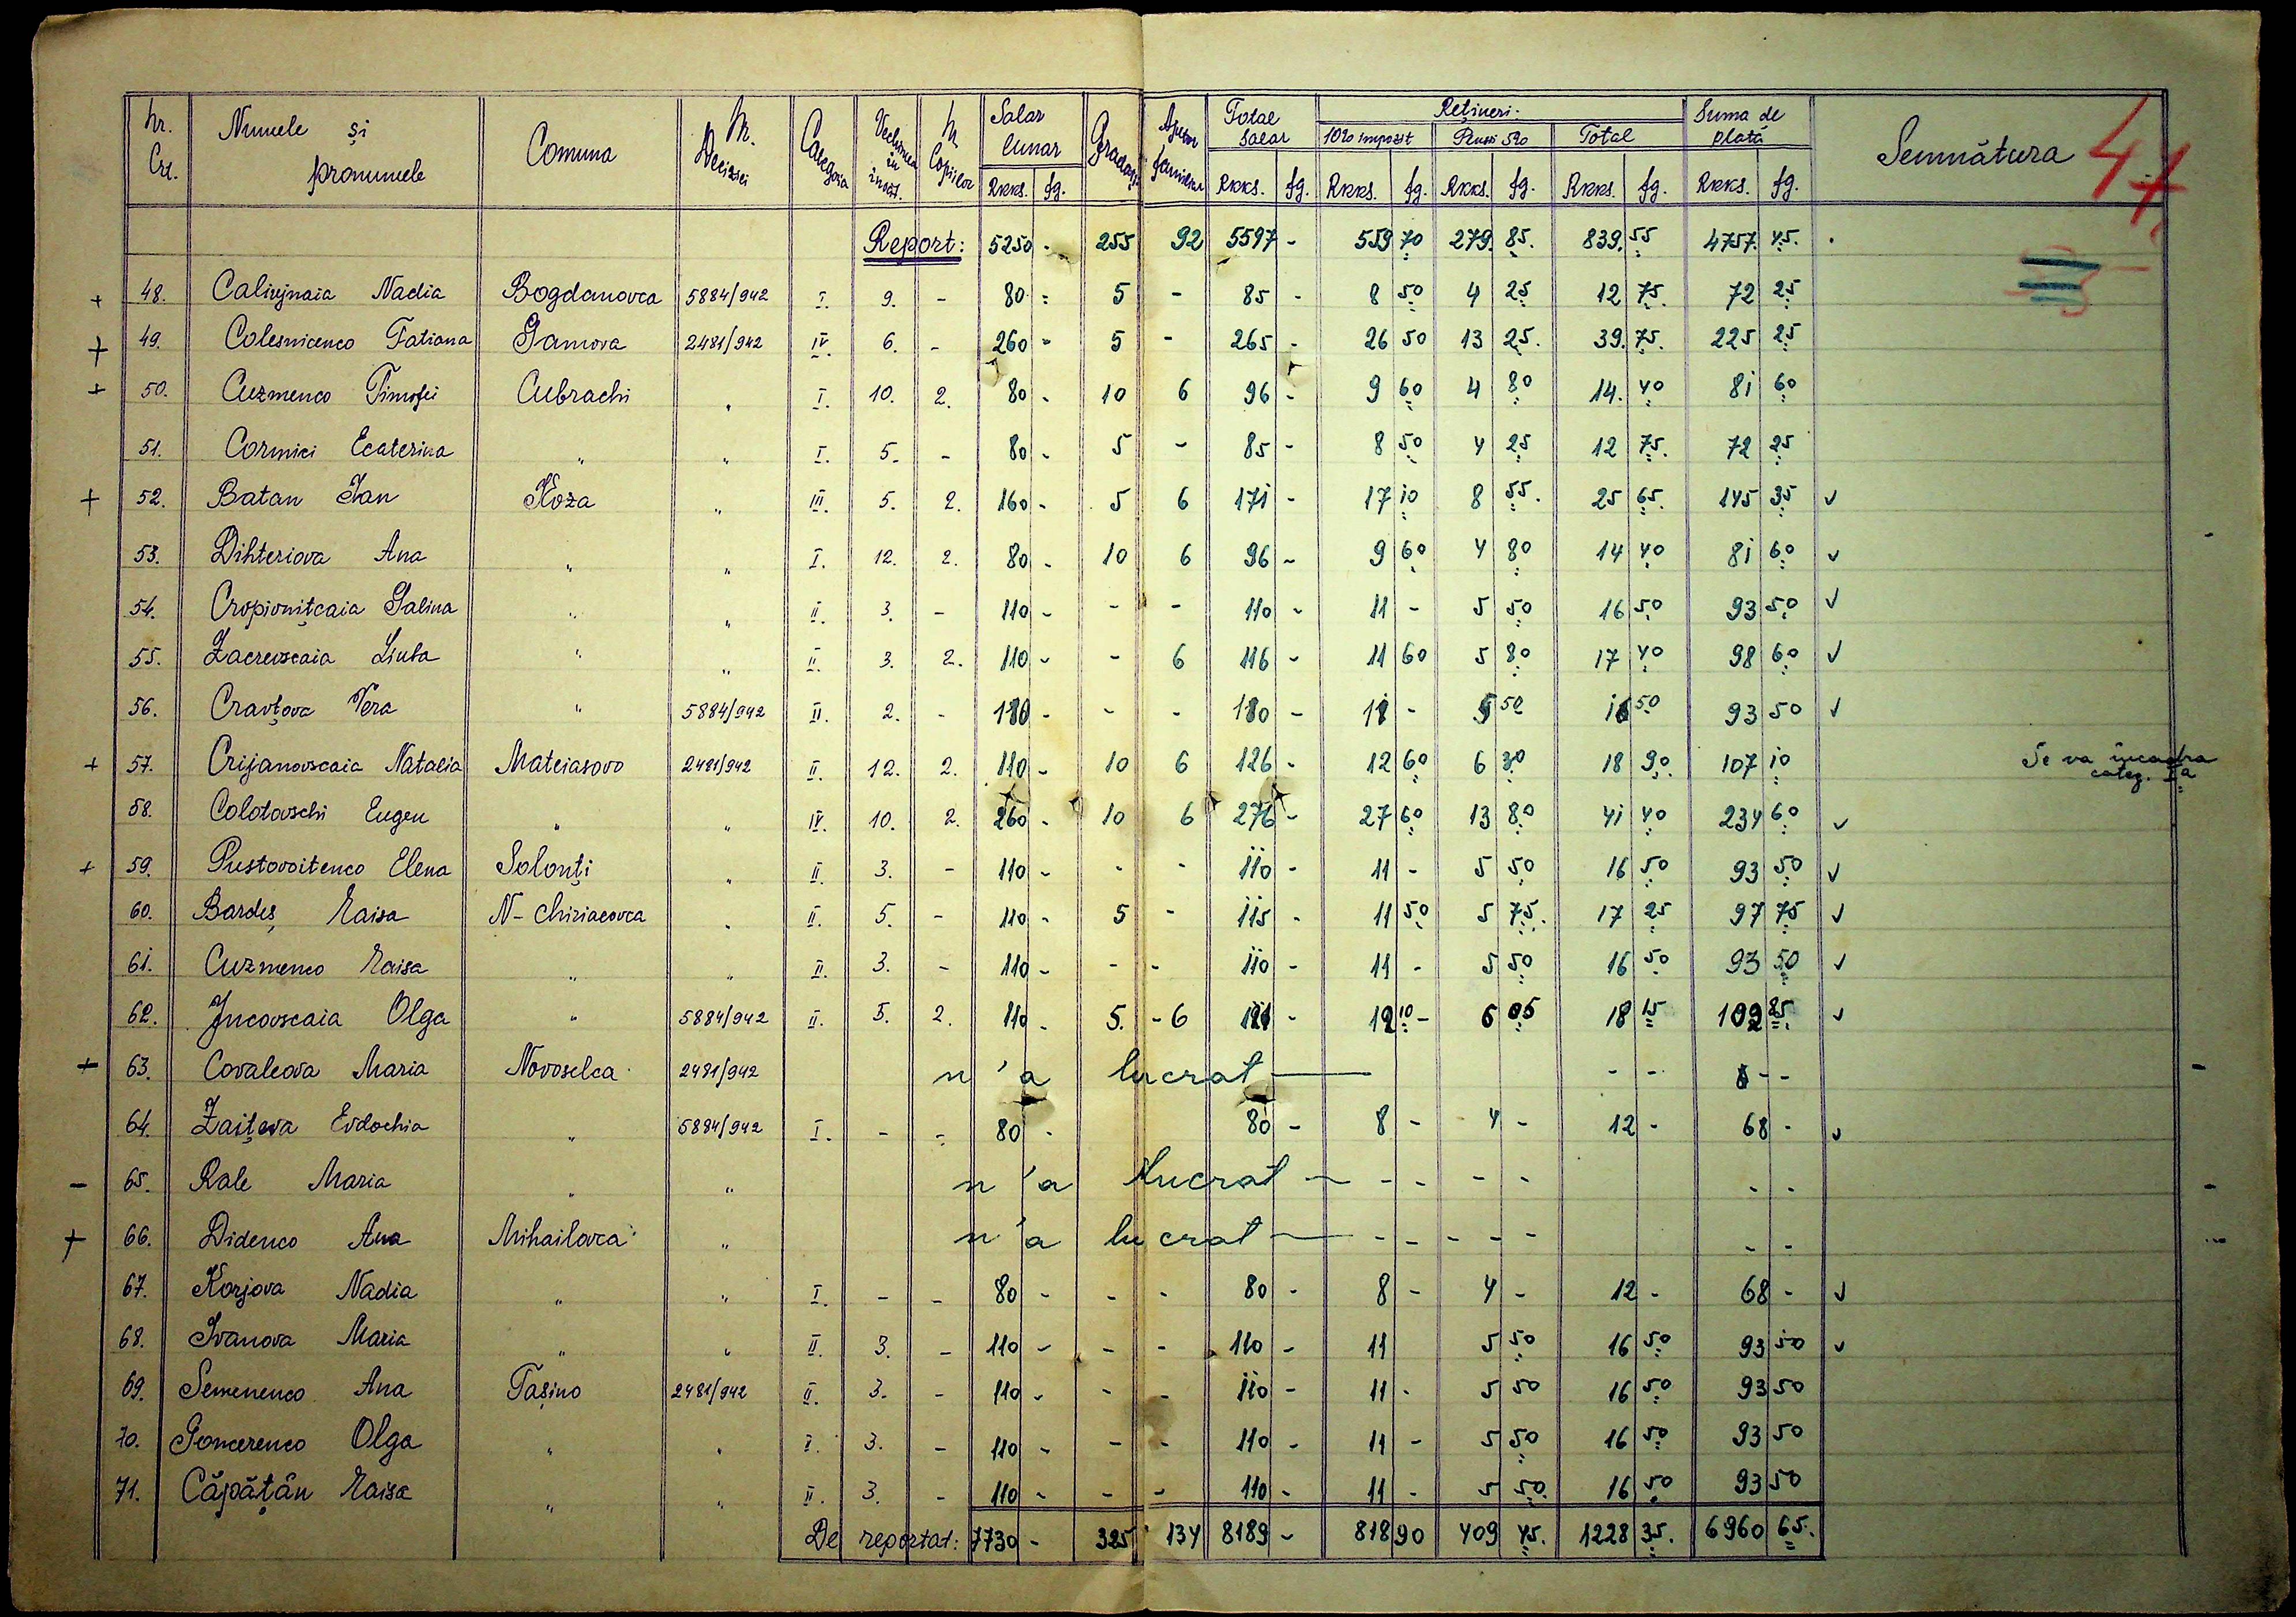 Nr. Crt. Numele și pronumele Comuna Nr. Deciziei Categoria Vechimea în învăț. Nr. Copiilor Salar lunar Gradații Ajutor familiar Total salar Rețineri. Suma de plată Semnătura 47
10% impozit Pensii 5% Total
RKKS. fg. RKKS. fg. RKKS. fg. RKKS. fg. RKKS. fg. RKKS. fg.
Report: 5250 - 255 92 5597 - 559 70 279. 85. 839. 55 4757. 45.
+ 48. Calinjnaia Nadia Bogdanovca 5884/942 I. 9. - 80 - 5 - 85 - 8 50 4 25 12 75. 72 25
+ 49. Colesnicenco Tatiana Gamova 2481/942 IV. 6. - 260 - 5 - 265 - 26 50 13 25. 39. 75. 225 25
+ 50. Cuzmenco Timofei Cubrachi " I. 10. 2. 80 - 10 6 96 - 9 60 4 80 14. 40 81 60
51. Cormici Ecaterina " " I. 5. - 80 - 5 - 85 - 8 50 4 25 12 75. 72 25
+ 52. Batan Ian Koza " III. 5. 2. 160 - 5 6 171 - 17 10 8 55. 25 65. 145 35 ✓
53. Dihteriova Ana " " I. 12. 2. 80 - 10 6 96 - 9 60 4 80 14 40 81 60 ✓
54. Cropivnițcaia Galina " " II. 3. - 110 - - - 110 - 11 - 5 50 16 50 93 50 ✓
55. Zacrevscaia Liuba " " II. 3. 2. 110 - - 6 116 - 11 60 5 80 17 40 98 60 ✓
56. Cravțova Vera " 5884/942 II. 2. - 110 - - - 110 - 11 - 5 50 16 50 93 50 ✓
+ 57. Crijanovscaia Natalia Mateiasovo 2481/942 II. 12. 2. 110 - 10 6 126 - 12 60 6 30 18 90. 107 10 Se va încadra categ. I a
58. Colotovschi Eugen " " IV. 10. 2. 260 - 10 6 276 - 27 60 13 80 41 40 234 60 ✓
+ 59. Pustovoitenco Elena Solonți " II. 3. - 110 - - - 110 - 11 - 5 50 16 50 93 50 ✓
60. Bardeș Raisa N-Chiriacovca " II. 5. - 110 - 5 - 115 - 11 50 5 75. 17 25 97 75 ✓
61. Cuzmenco Raisa " " II. 3. - 110 - - - 110 - 11 - 5 50 16 50 93 50 ✓
62. Jucovscaia Olga " 5884/942 II. 5. 2. 110 - 5. - 6 121 - 12 10 - 6 05 18 15 102 85. ✓
+ 63. Covaleova Maria Novoselca 2481/942 n'a lucrat — - - - -
64. Zaițeva Evdochia " 5884/942 I. - - 80 - 80 - 8 - 4 - 12 - 68 - ✓
- 65. Rale Maria " " n'a lucrat — - - - - - -
+ 66. Didenco Ana Mihailovca " n'a lucrat — - - - - - - -
67. Korjova Nadia " " I. - - 80 - - - 80 - 8 - 4 - 12 - 68 - ✓
68. Ivanova Maria " " II. 3. - 110 - - - 110 - 11 5 50 16 50 93 50 ✓
69. Semenenco Ana Tașino 2481/942 II. 3. - 110 - - - 110 - 11 - 5 50 16 50 93 50
70. Goncerenco Olga " " I. 3. - 110 - - - 110 - 11 - 5 50 16 50 93 50
71. Căpățân Raisa " " II. 3. - 110 - - - 110 - 11 - 5 50. 16 50 93 50
De reportat: 7730 - 325 134 8189 - 818 90 409 45. 1228 35. 6960 65.